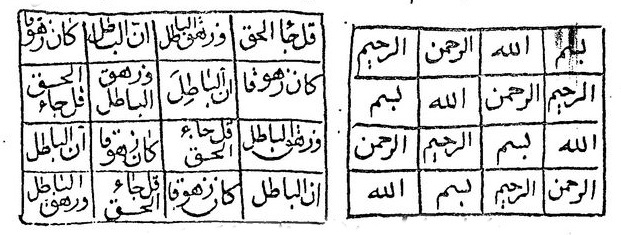 بسم الله الرحمن الرحيم
الرحيم الرحمن الله بسم
الله بسم الرحيم الرحمن
الرحمن الرحيم بسم الله
قل جا الحق وزهق الباطل ان الباطل كان زهوقا
كان زهوقا ان الباطِلَ وزهق الباطل قل جاء الحق
وزهق الباطل قل جاء الحق كان زهوقا ان الباطل
ان الباطل كان زهوقا قل جاء الحق وزهق الباطل